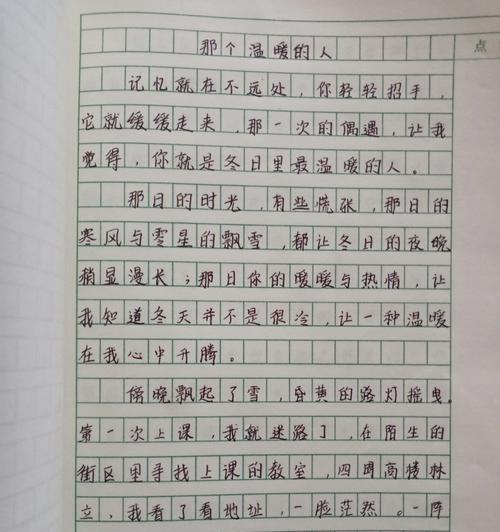 那个温暖的人
记忆就在不远处，你轻轻招手，
它就缓缓走来，那一次的偶遇，让我
觉得，你就是冬日里最温暖的人。
那日的时光，有些慌张，那日的
寒风与零星的飘雪，都让冬日的夜晚
稍显漫长；那日你的暖暖与热情，让
我知道冬天并不是很冷，让一种温暖
在我心中升腾。
傍晚飘起了雪，昏黄的路灯摇曳。
第一次上课，我就迷路了，在陌生的
街区里寻找上课的教室，四周高楼林
立，我看了看地址，一脸茫然。一阵
点